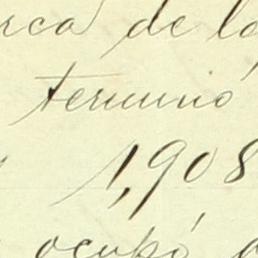 rca de lo
terminó
1,908
ocupó